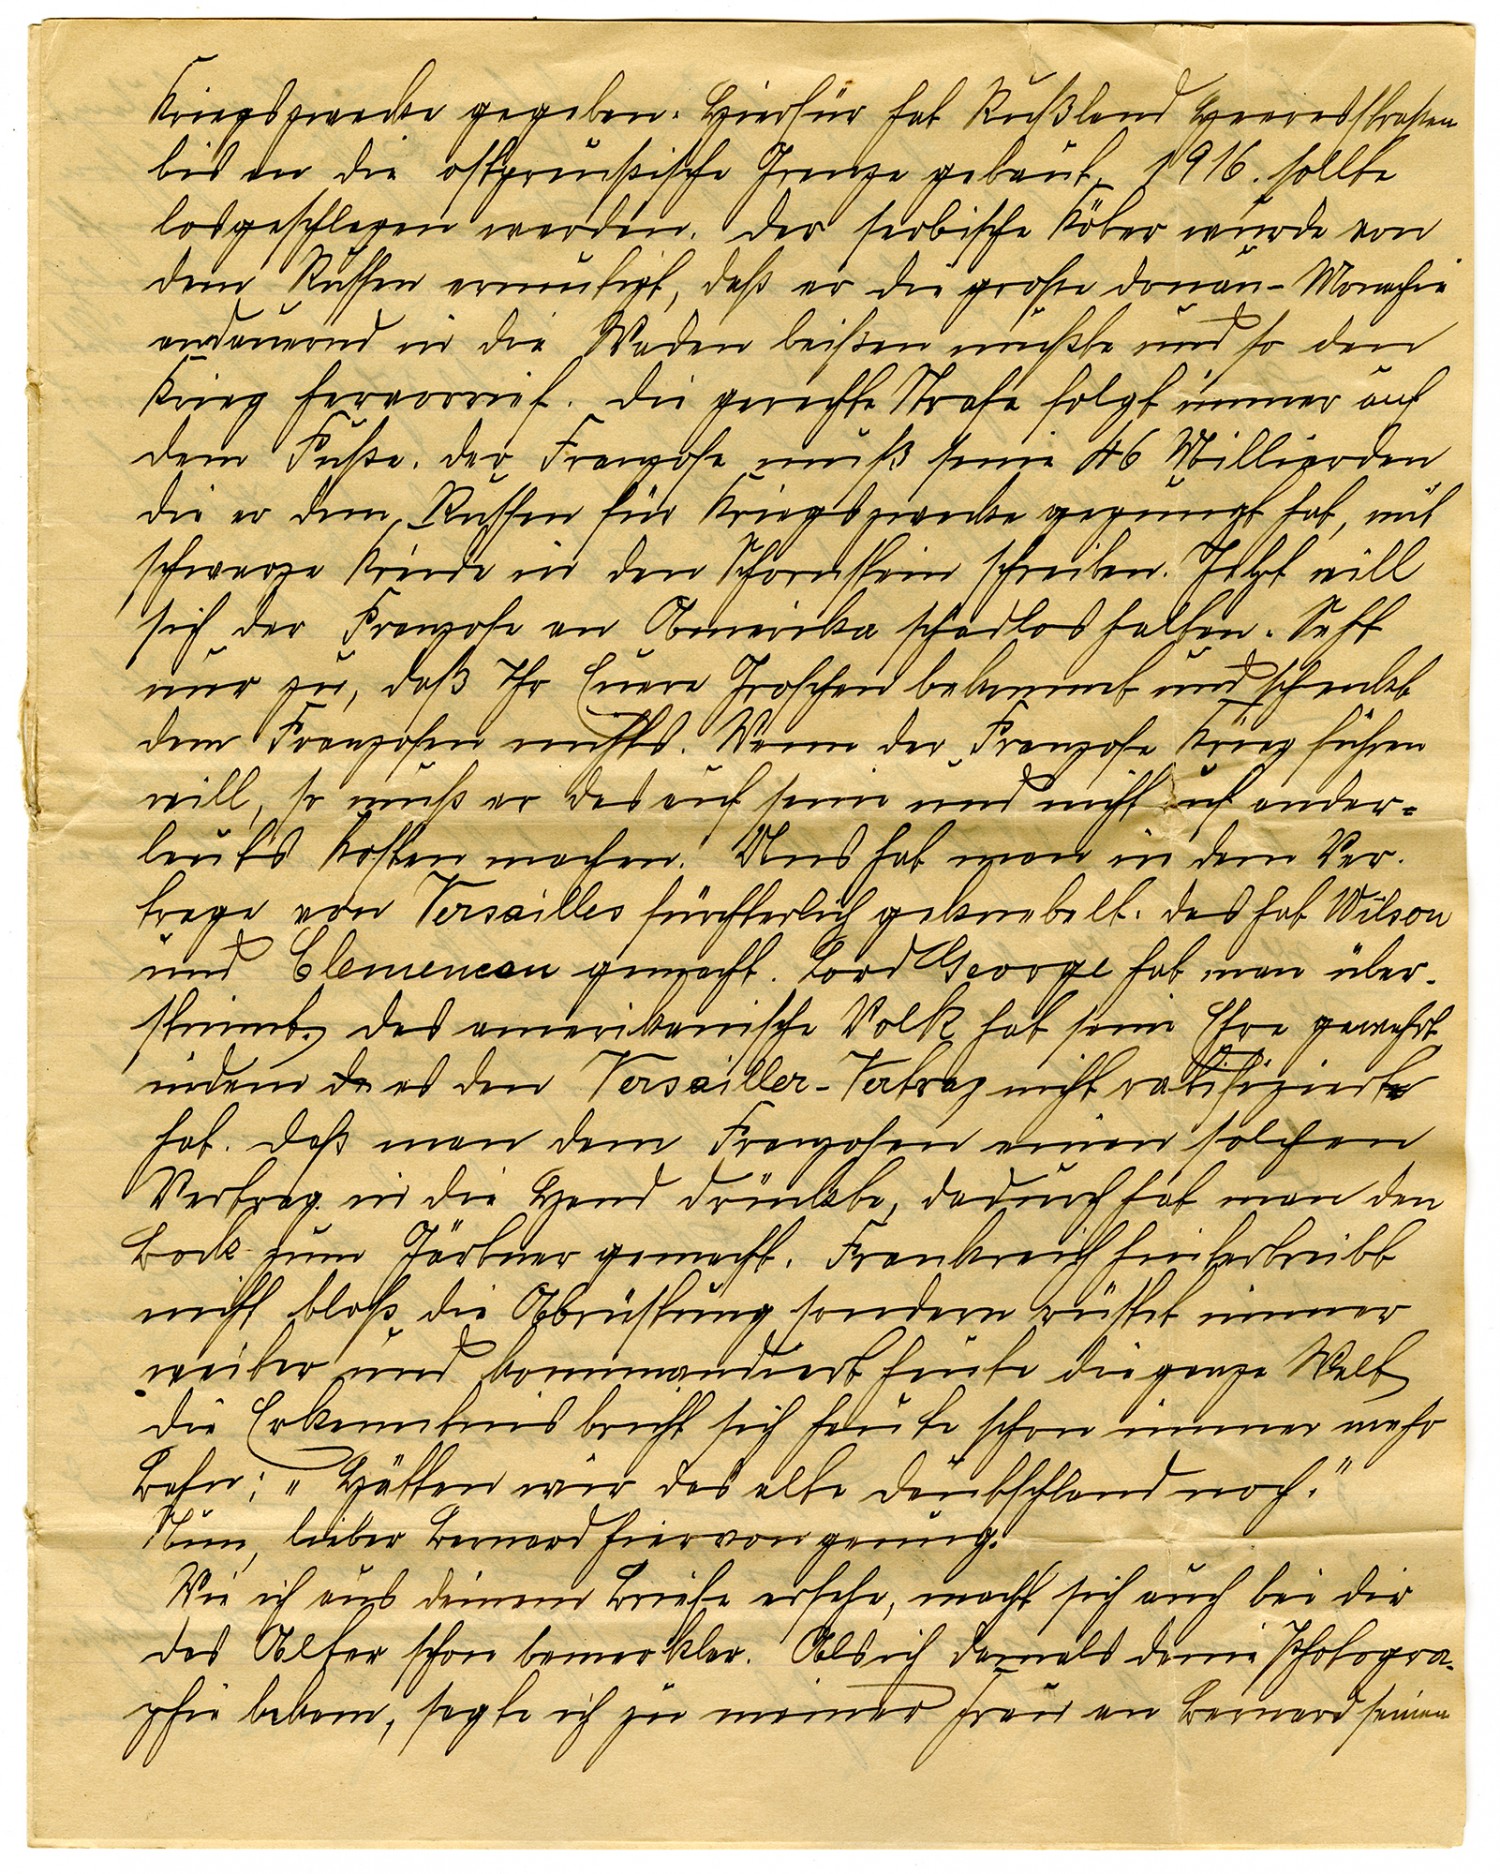 Kriegszwecke gegeben. Hierfür hat Rußland Heeresstraßen
bis an die ostpreußische Grenze gebaut, 1916. sollte
losgeschlagen werden. Der serbische Köter wurde von
dem Russen ermutigt, daß er die große Donau-Monachie
andauernd in die Waden beißen mußte und so den
Krieg hervorrief. Die gerechte Strafe folgt immer auf
dem Fuße. Der Franzose muß seine 46 Milliarden
die er dem Russen für Kriegszwecke gepumpt hat, mit
schwarze Kreide in den Schornstein schreiben. Jetzt will
sich der Franzose an Amerika schadlos halten. Seht
nur zu, daß Ihr Euere Groschen bekommt und schenkt
dem Franzosen nichts. Wenn der Franzose Krieg führen
will, so muß er das auf seine und nicht auf ander-
leuts Kosten machen. Uns hat man in dem Ver-
trage von Versailles fürchterlich geknebelt. Das hat Wilson
und Clemencau gemacht. Lord George hat man über-
stimmt. Das amerikanische Volk hat seine Ehre gewahrt
indem es den Versailler-Vertrag nicht ratifizierte
hat. Daß man dem Franzosen einen solchen
Vertrag in die Hand drückte, dadurch hat man den
Bock zum Gärtner gemacht. Frankreich hintertreibt
nicht bloß die Abrüstung sondern rüstet immer
weiter und kommandiert heute die ganze Welt
Die Erkenntnis bricht sich heute schon immer mehr
Bahn; „Hätten wir das alte Deutschland noch."
Nun, lieber Bernard hiervon genug.
Wie ich aus deinem Briefe ersehe, macht sich auch bei dir
das Alter schon bemerkbar. Als ich damals deine Photogra-
phie bekam, sagte ich zu meiner Frau an Bernard seinen